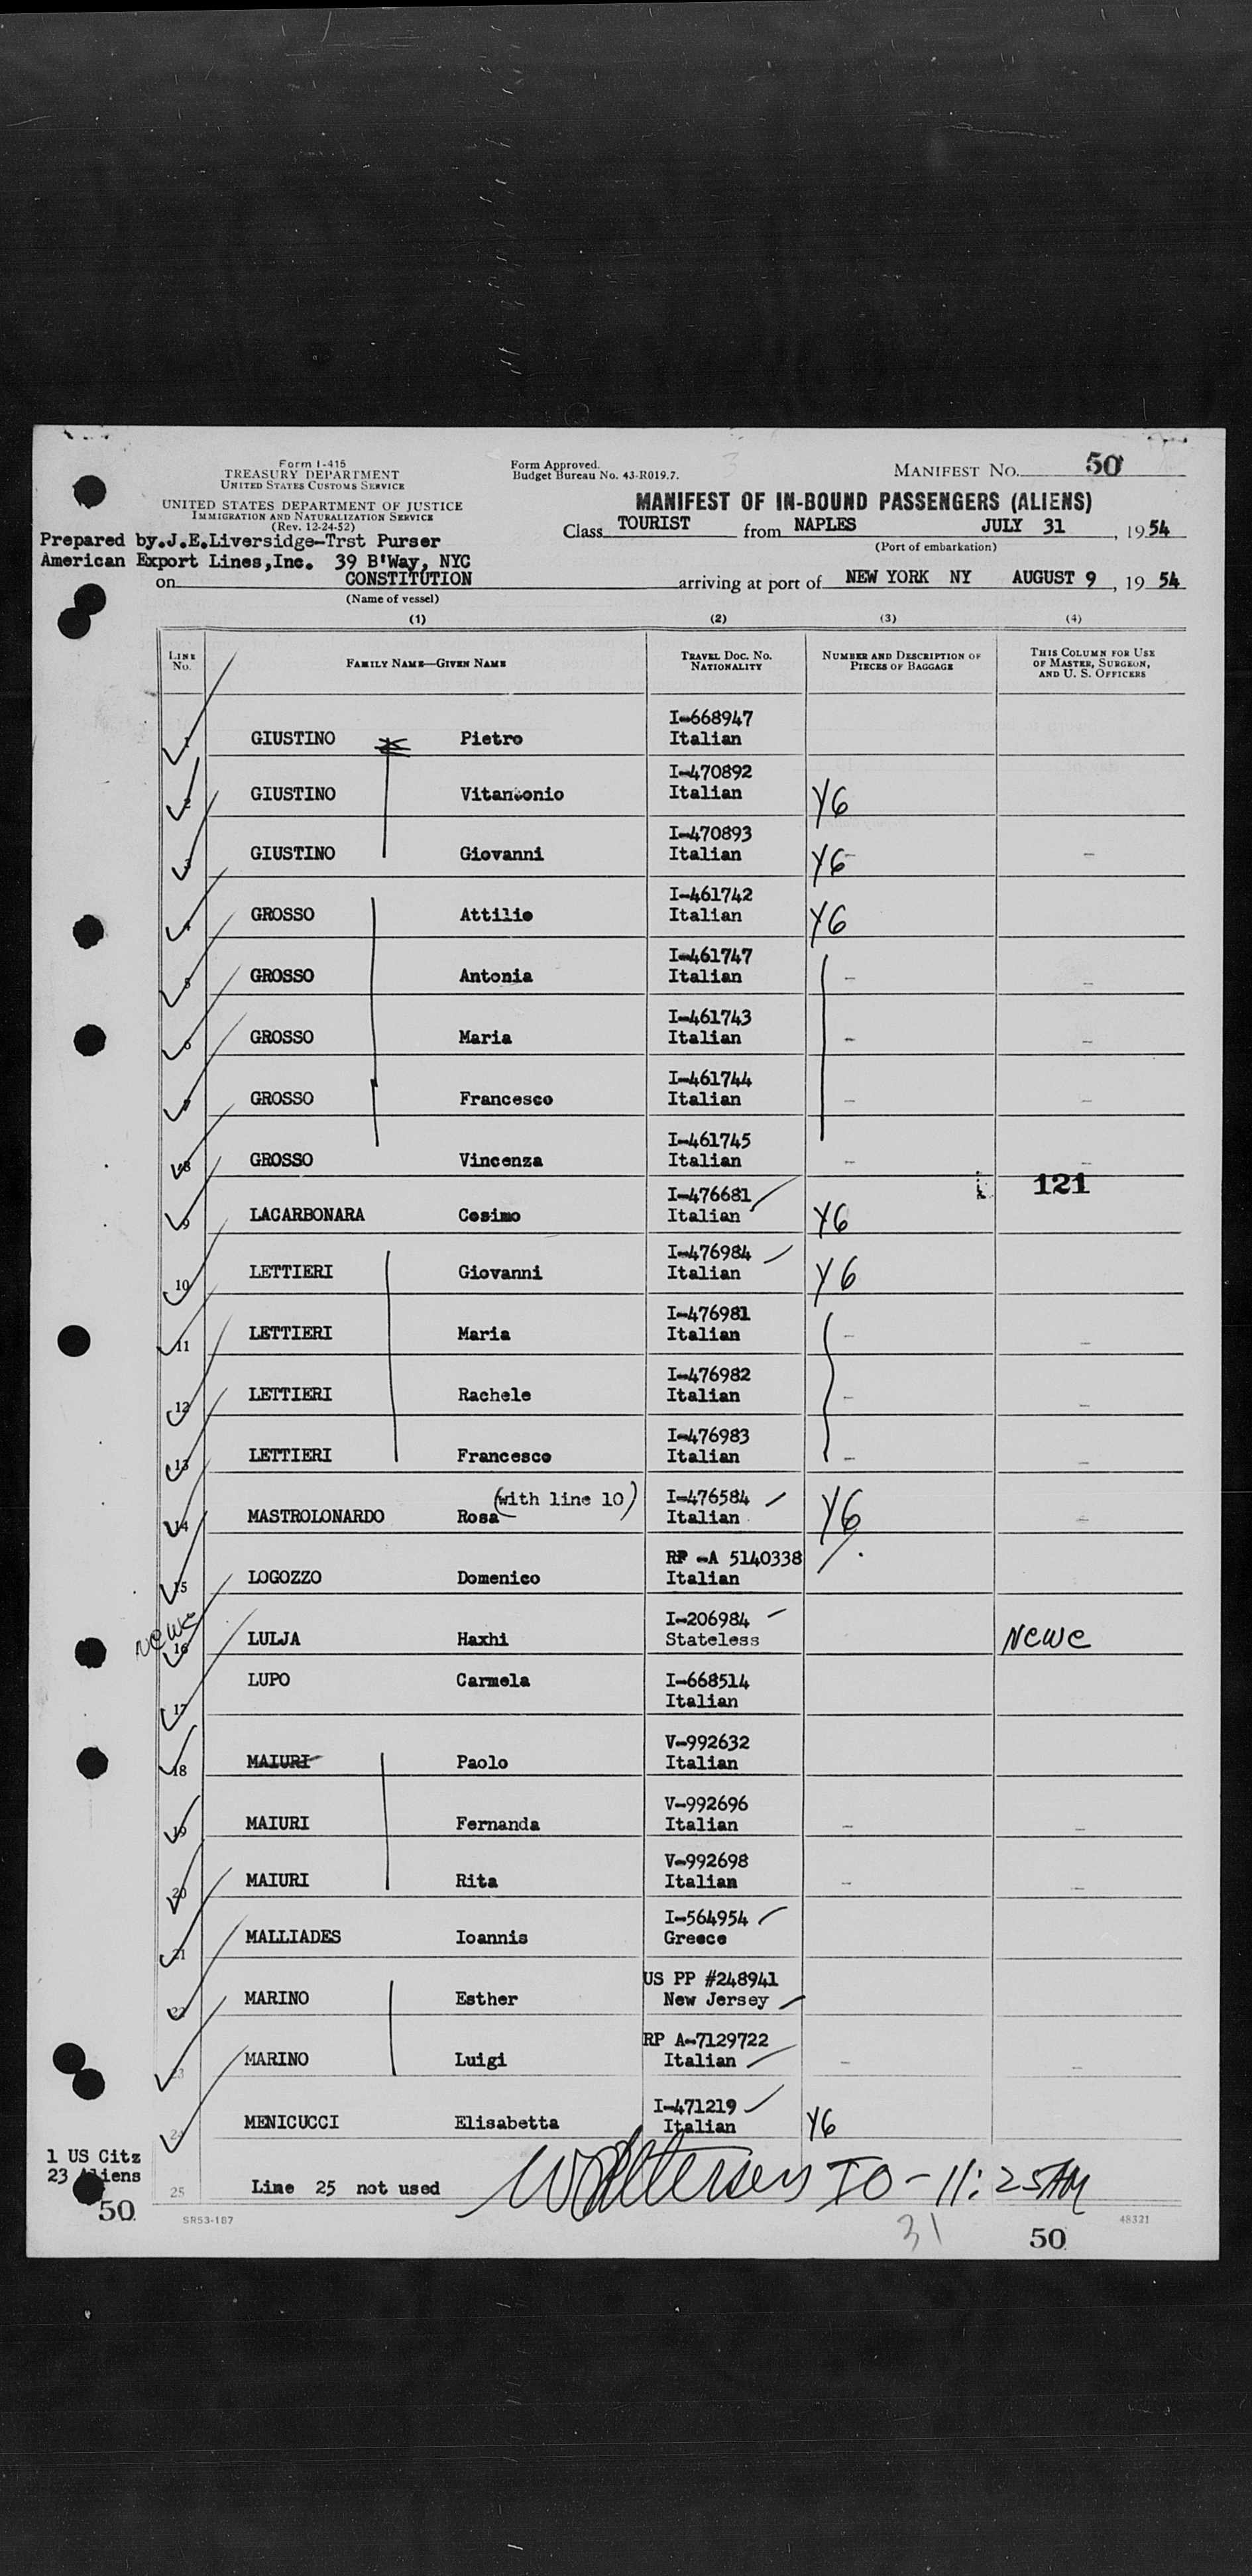 Form I-415
TREASURY DEPARTMENT
UNITED STATES CUSTOMS SERVICE
UNITED STATES DEPARTMENT OF JUSTICE
IMMIGRATION AND NATURALIZATION SERVICE
(Rev. 12-24-52)
Form Approved.
Budget Bureau No. 43-R019.7.
MANIFEST NO. 50
MANIFEST OF IN-BOUND PASSENGERS (ALIENS)
Class TOURIST from NAPLES JULY 31, 1954
(Port of embarkation)
Prepared by.J.E.Liversidge-Trst Purser
American Export Lines,Inc. 39 B'Way, NYC
on CONSTITUTION arriving at port of NEW YORK NY AUGUST 9, 1954
(Name of vessel)
(1) (2) (3) (4)
LINE NO. FAMILY NAME—GIVEN NAME TRAVEL DOC. NO. NATIONALITY NUMBER AND DESCRIPTION OF PIECES OF BAGGAGE THIS COLUMN FOR USE OF MASTER, SURGEON, AND U. S. OFFICERS
I-668947
1 GIUSTINO Pietro Italian
I-470892
2 GIUSTINO Vitantonio Italian Y6
I-470893
3 GIUSTINO Giovanni Italian Y6 -
I-461742
4 GROSSO Attilio Italian Y6
I-461747
5 GROSSO Antonia Italian - -
I-461743
6 GROSSO Maria Italian - -
I-461744
7 GROSSO Francesco Italian - -
I-461745
8 GROSSO Vincenza Italian - -
121
I-476681
9 LACARBONARA Cosimo Italian Y6
I-476984
10 LETTIERI Giovanni Italian Y6
I-476981
11 LETTIERI Maria Italian - -
I-476982
12 LETTIERI Rachele Italian - -
I-476983
13 LETTIERI Francesco Italian -
(with line 10) I-476584
14 MASTROLONARDO Rosa Italian Y6 -
RP -A 5140338
15 LOGOZZO Domenico Italian
I-206984
newe 16 LULJA Haxhi Stateless Newe
17 LUPO Carmela I-668514
Italian
V-992632
18 MAIURI Paolo Italian
V-992696
19 MAIURI Fernanda Italian - -
V-992698
20 MAIURI Rita Italian - -
I-564954
21 MALLIADES Ioannis Greece
US PP #248941
22 MARINO Esther New Jersey
RP A-7129722
23 MARINO Luigi Italian - -
I-471219
24 MENICUCCI Elisabetta Italian Y6
1 US Citz
23 Aliens
25 Line 25 not used IO - 11:25AM
50
SR53-187
31
50
48321